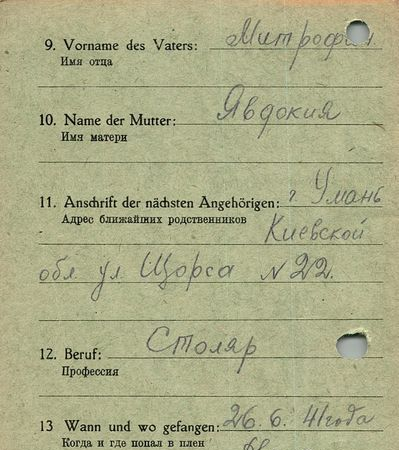 9. Vorname des Vaters: Митрофан
Имя отца
10. Name der Mutter: Явдокия
Имя матери
11. Anschrift der nächsten Angehörigen: г. Умань
Адрес ближайших родственников Киевской
обл ул Щорса N 22.
12. Beruf: Столяр
Профессия
13 Wann und wo gefangen: 26. 6. 41 года
Когда и где попал в плен